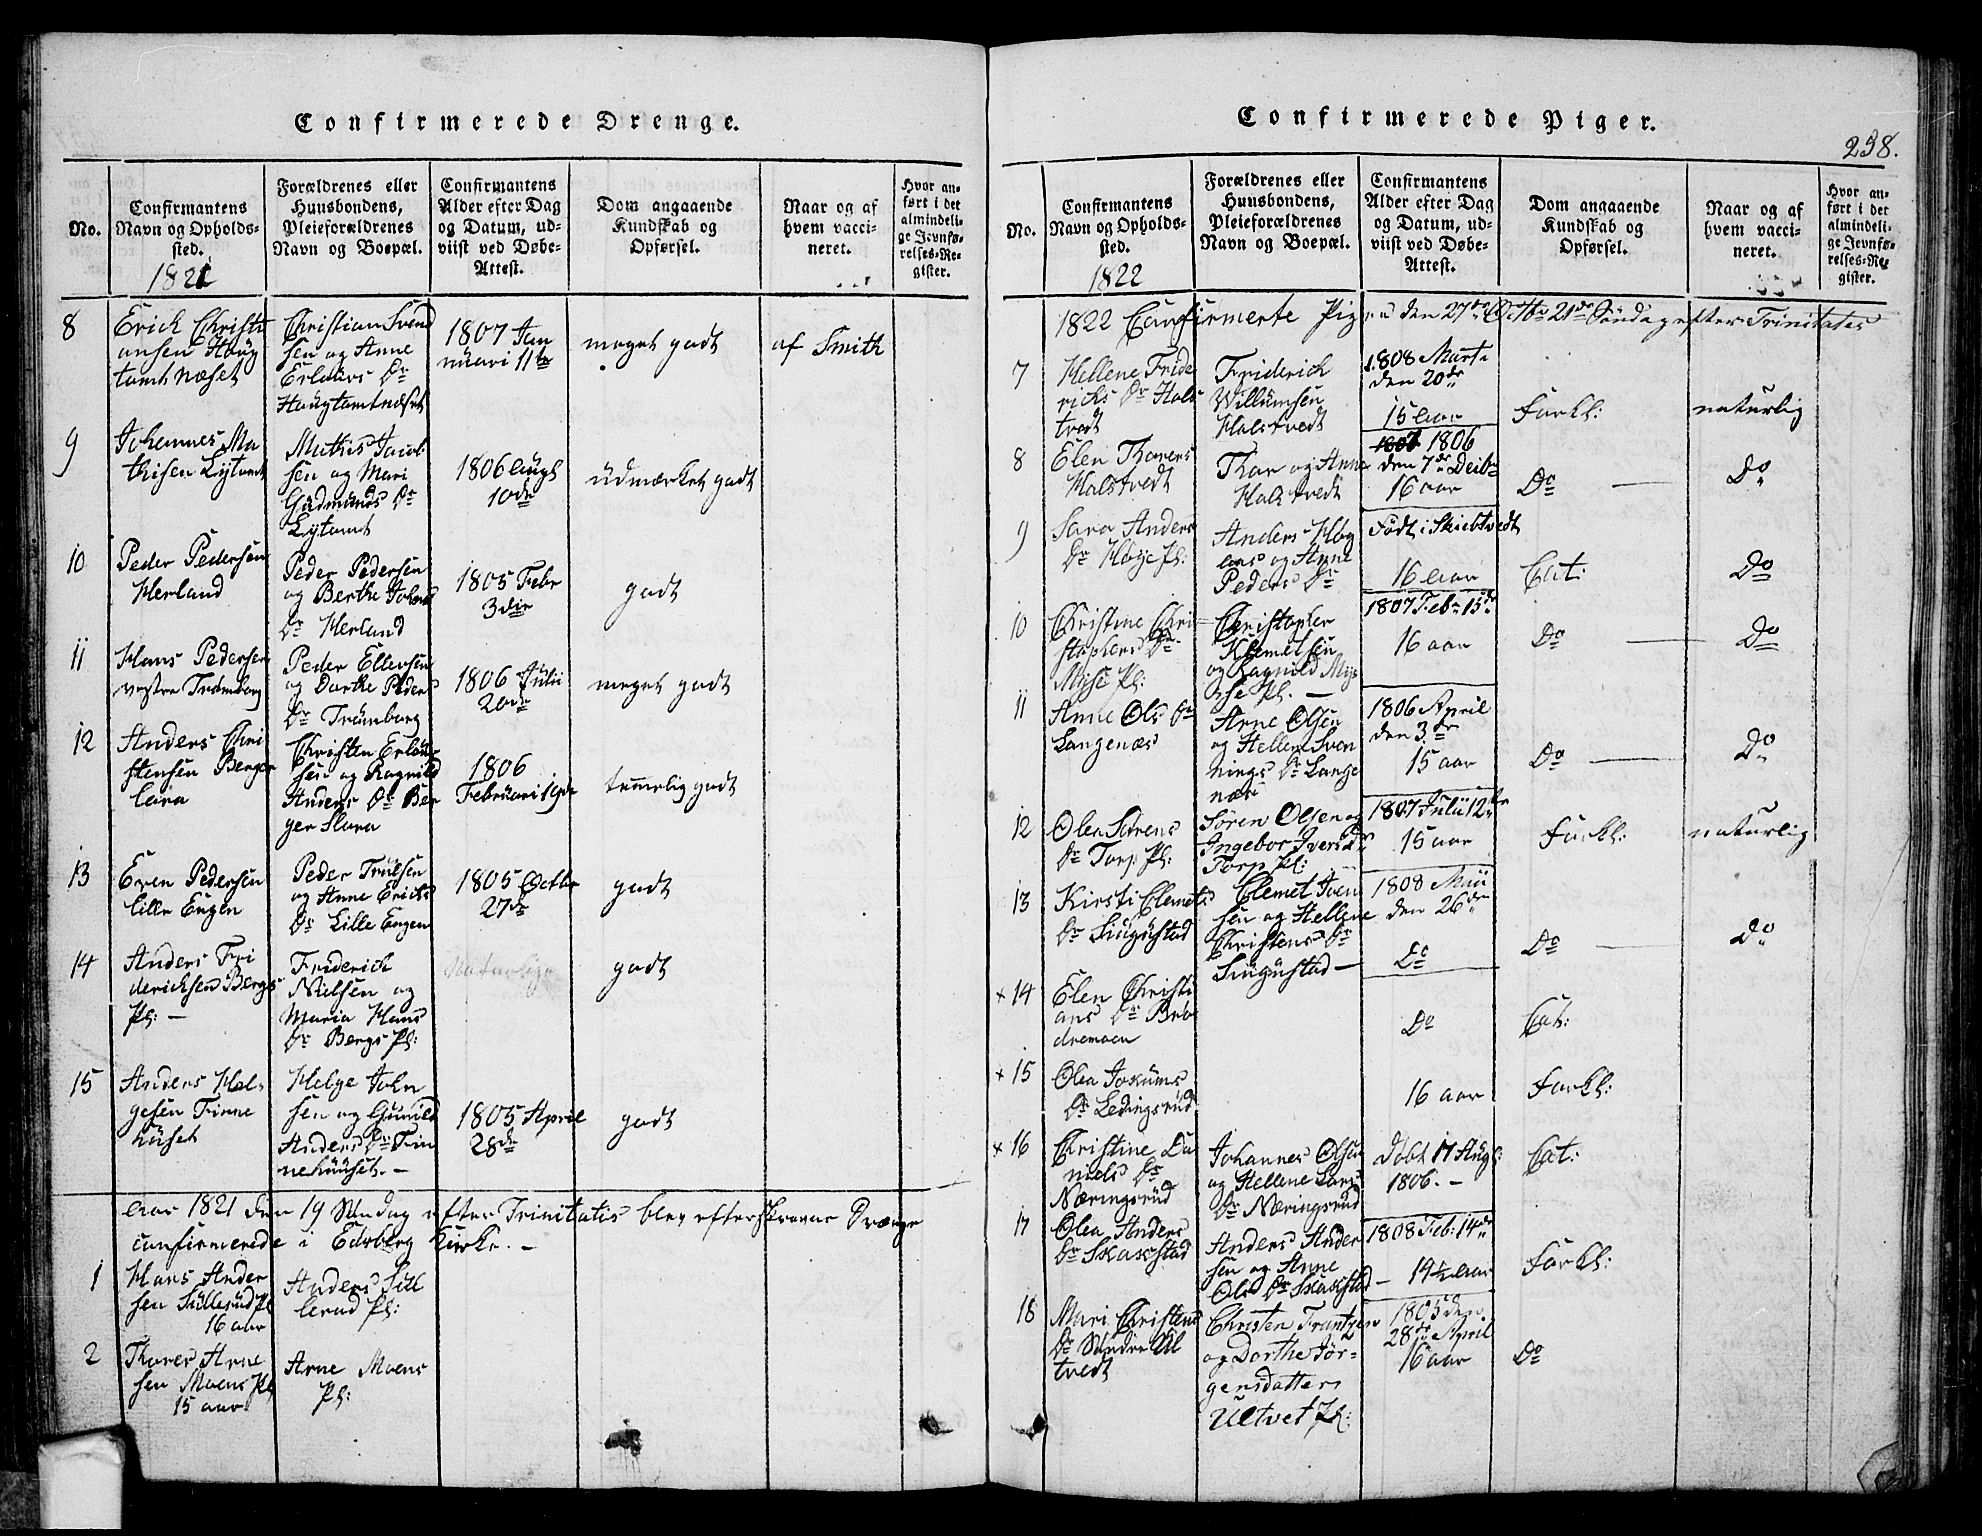 Confirmerede Drenge.
No.
Confirmantens
Navn og Opholds-
sted.
1821
Forældrenes eller
Huusbondens,
Pleieforældrenes
Navn og Boepæl.
Confirmantens
Alder efter Dag
og Datum, ud-
viist ved Døbe-
Attest.
Dom angaaende
Kundskab og
Opførsel.
Naar og af
hvem vacci-
neret.
Hvor an-
ført i det
almindeli-
ge Jevnfø-
relses-Re-
gister.
8
Erick Christi
ansen Houg
tomt Næset
Christian Svend
sen og Anne
Erlands Dr
Hougtomtnæset
1807 Jan
nuari 11te
meget godt
af Smith
9
Johannes Ma
thisen Lytomt
Mathis Jacob
sen og Mari
Gudmunds Dr
Lytomt
1806 Augt
10de
udmærket godt
10
Peder Pedersen
Herland
Peder Pedersen
og Berthe Johns
Dr Herland
1805 Febr
3die
godt
11
Hans Pedersen
vestre Trømborg
Peder Ellevsen
og Dorthe Peders
Dr Trømborg
1806 Julii
20de
meget godt
12
Anders Chri
stensen Berger
Christen Erland
sen og Ragnild
Anders Dr Ber
ger Slora
1806
Februari 19de
temelig godt
13
Even Pedersen
lille Engen
Peder Trulsen
og Anne Ericks
Dr Lille Engen
1805 Octbr
27de
godt
14
Anders Fri
derichsen Bergs
Pl: —
Friderich
Nielsen og
Maria Hans
Dr Bergs Pl:
Naturlige
godt
15
Anders Hel-
gesen Finne
huset
Helge John
sen og Gunild
Anders Dr Fin
nehuuset. —
1805 April
28de
godt
Aar 1821 den 19 Søndag efter Trinitatis blev efterskrevne Drænge
confirmerede i Edsberg Kirke. —
1
Hans Ander
sen Sullerud Pl
16 aar
Anders Sill
lerud Pl:
2
Thorer Arne
sen Moens Pl
15 aar
Arne Moens
Pl:
Confirmerede Piger.
238.
No.
Confirmantens
Navn og Opholds-
sted.
1822
Forældrenes eller
Huusbondens,
Pleieforældrenes
Navn og Boepæl.
Confirmantens
Alder efter Dag
og Datum, ud-
viist ved Døbe-
Attest.
Dom angaaende
Kundskab og
Opførsel.
Naar og af
hvem vacci-
neret.
Hvor an-
ført i det
almindeli-
ge Jevnfø-
relses-Re-
gister.
1822 Confirmerte Piger den 27de Octbr 21de Søndag efter Trinitates
7
Hellene Fride
richs Dr Hals
tvedt
Friderich
Willumsen
Halstvedt
1808 Marts
den 20de
15 Aar
Forkl:
naturlig
8
Elen Thorers
Halstvedt
Thor og Anne
Halstvedt
1807 1806
den 7de Decbr
16 aar
Do —
Do
9
Sara Anders
Dr Høye Pl:
Anders Hog
ens og Anne
Peders Dr
Født i Skiebtvedt
16 Aar
Cat:
Do
10
Christine Chri
stophers Dr
Myse Pl:
Christopher
Klemetsen
og Ragnild Mys
se Pl. —
1807 Feb: 15de
16 aar
Do —
Do
11
Anne Ols Dr
Langenæs
Arne Olsen
og Hellen Sven
nings Dr Lange
næs
1806 April
den 3de
15 aar
Do —
Do
12
Olea Sørens
Dr Torp Pl:
Søren Olsen og
Ingebor Ivers Dr
Torp Pl:
1807 Julii 12te
15 aar
Forkl:
naturlig
13
Kirsti Clemets
Dr Singustad
Clemet Iven
sen og Hellene
Christens Dr
Singustad —
1808 Maii
den 26de
Do
Do —
Do
× 14
Elen Christi
ans Dr Brø
dremoen
Do
Cat:
× 15
Olea Jokums
Dr Ledingsrud
16 aar
Forkl:
× 16
Christine Da
niels Dr
Næringsrud
Johannes Olsen
og Hellene Lars
Dr Næringsrud
døbt 17 Augs:
1806. —
Cat:
17
Olea Anders
Dr Skakstad
Anders Ander
sen og Anne
Ols Dr Skakstad —
1808 Feb: 14de
14½ Aar
Forkl:
18
Mari Christens
Dr Søndre Ul
tvedt
Christen Frantzen
og Dorthe Jør-
gensdatter
Ultvet Pl:
1805 den
28de April
16 aar
Do